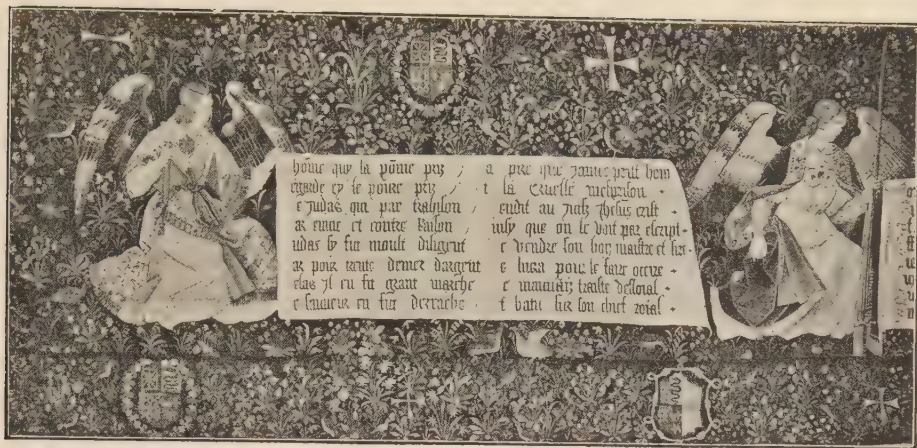 hōme quy la pōme priz
egarde cy le poure priz
e Judas qui par trahison
ar enuie et contre raison
udas sy fu moult diligent
ar pour trente denier dargent
elas Jl en fu grant marche
e sauueur en fut detrache
a que Jamais peut hom
t la cruelle mesprison
endit au Juifz Jhesus crist
insy que on le voit par escript
e vendre son bon maistre et
e liura pour le faire occire
e mauuaiz traistre desloial
t batu sur son chief roial